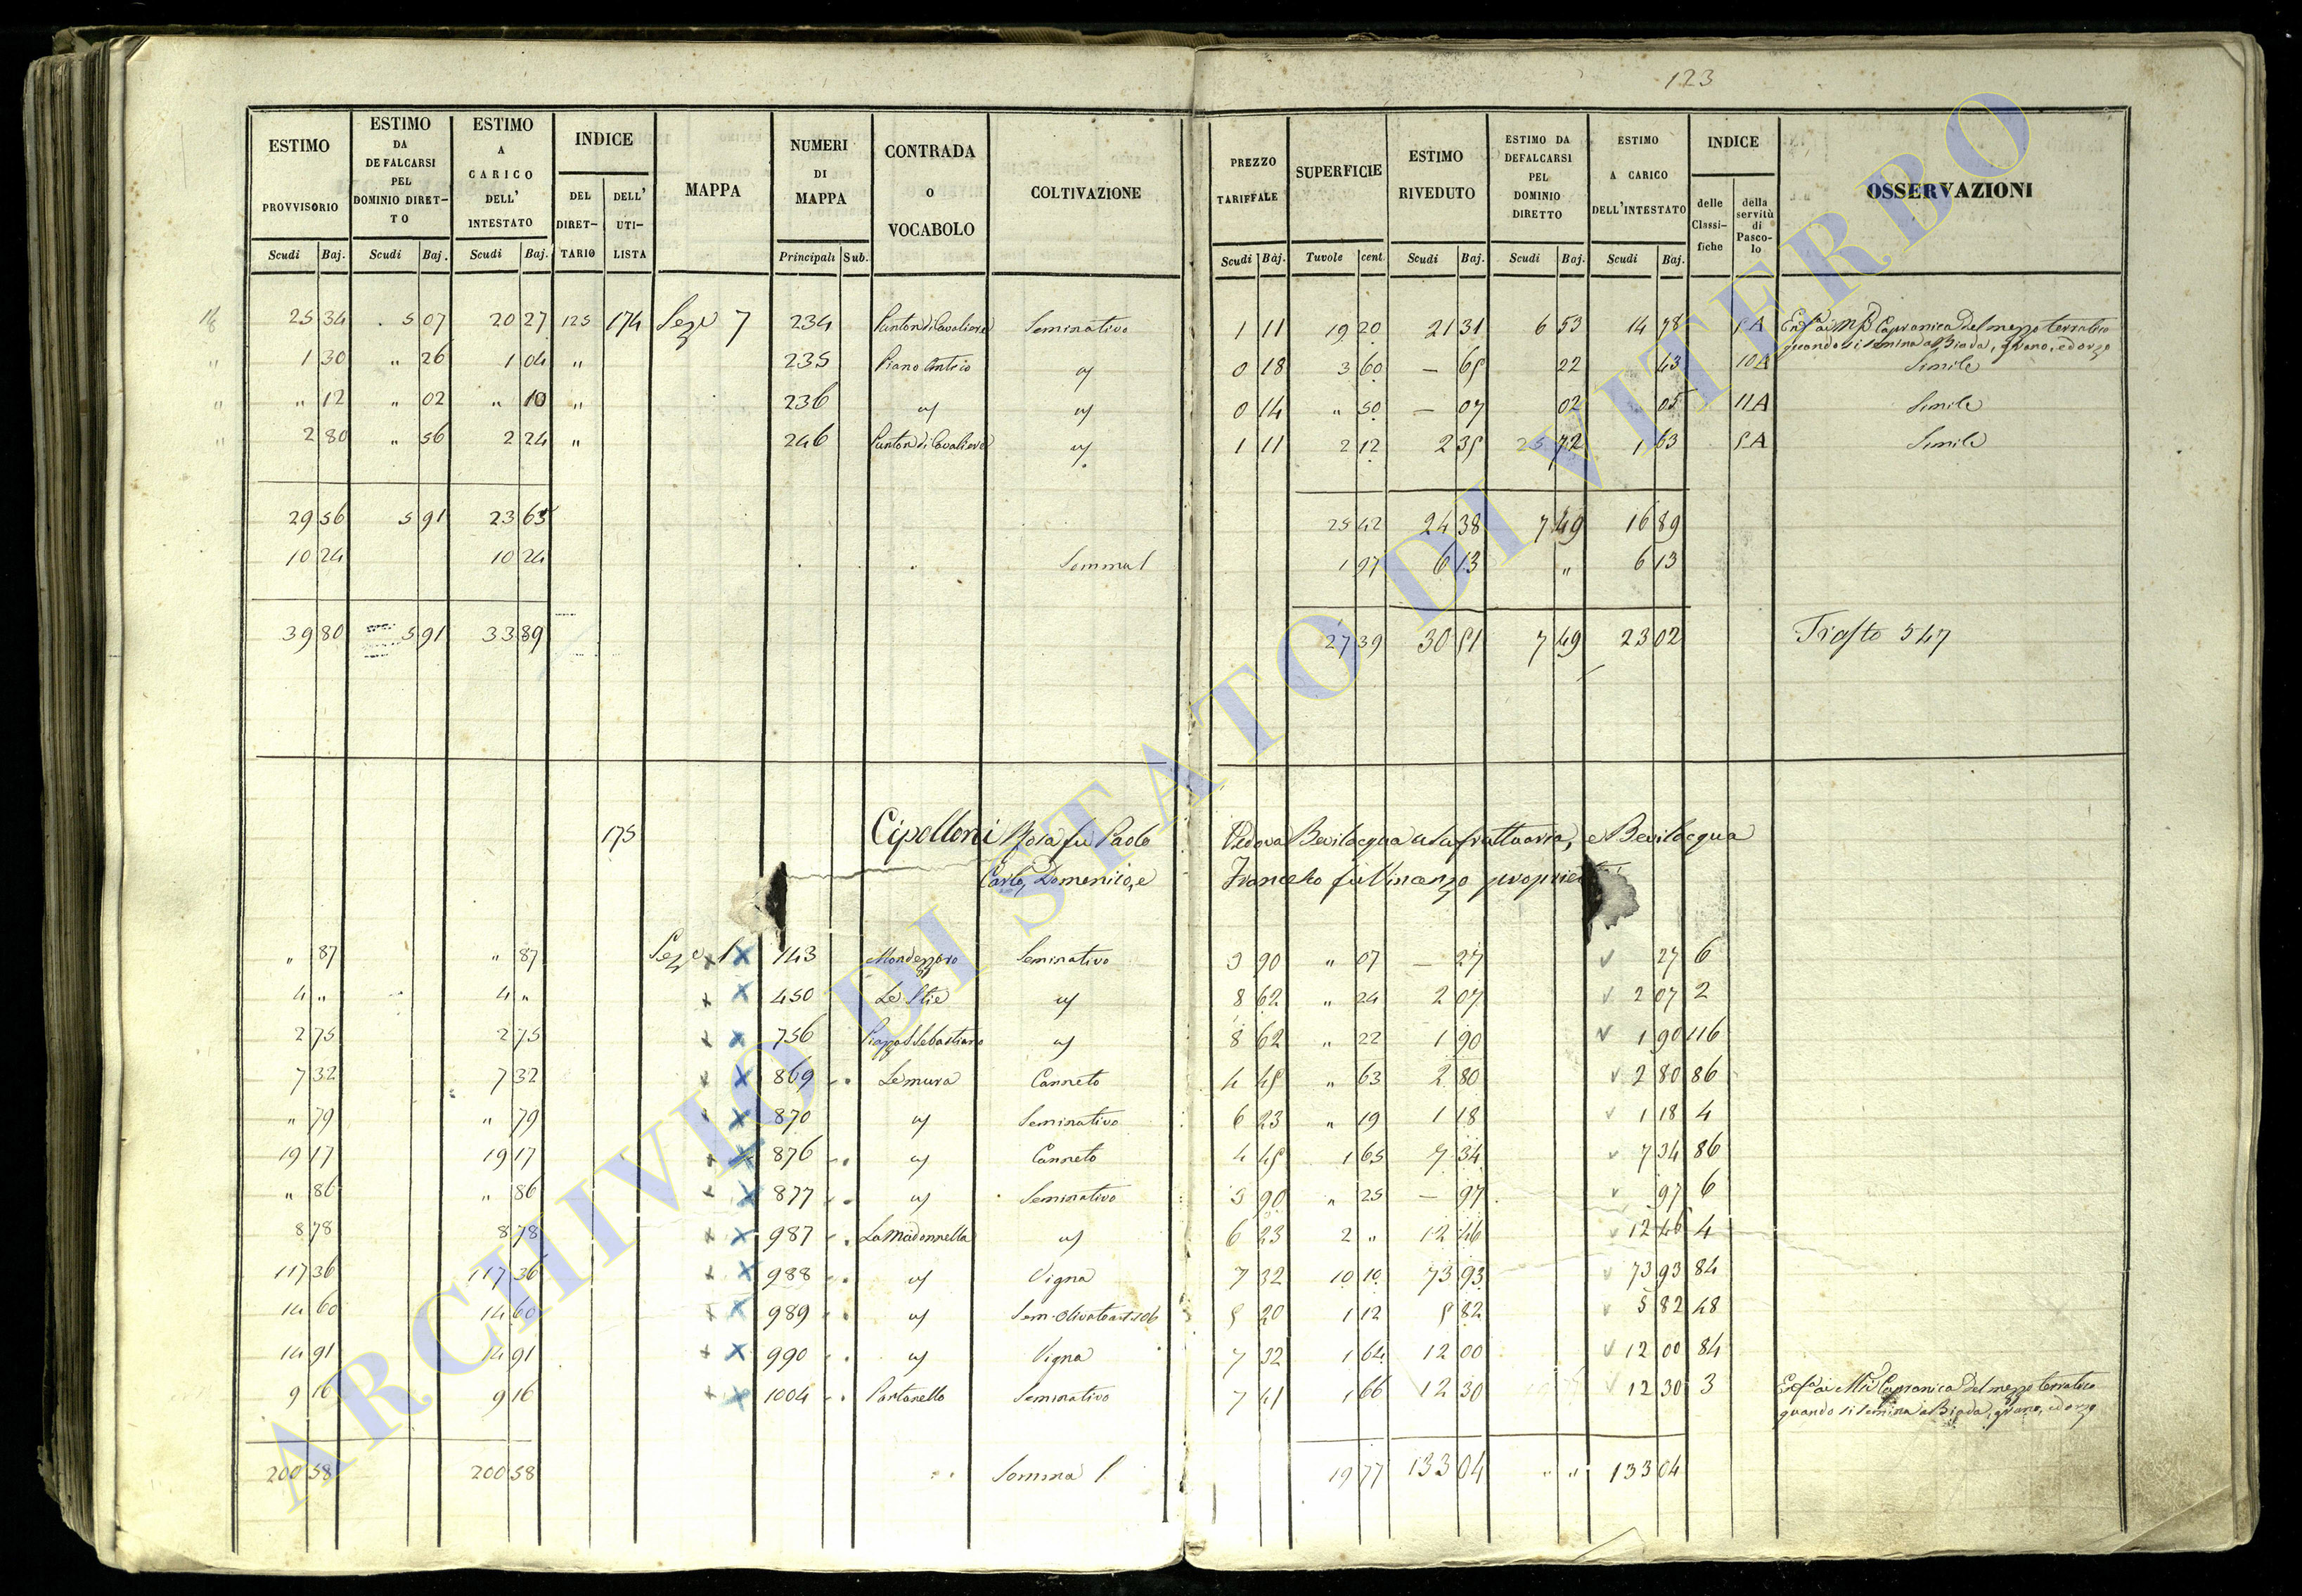 123
ESTIMO PROVVISORIO Scudi Baj.
ESTIMO DA DEFALCARSI PEL DOMINIO DIRETTO Scudi Baj.
ESTIMO A CARICO DELL' INTESTATO Scudi Baj.
INDICE DEL DIRETTARIO DELL' UTILISTA
MAPPA
NUMERI DI MAPPA Principali Sub.
CONTRADA O VOCABOLO
COLTIVAZIONE
PREZZO TARIFFALE Scudi Baj.
SUPERFICIE Tavole cent.
ESTIMO RIVEDUTO Scudi Baj.
ESTIMO DA DEFALCARSI PEL DOMINIO DIRETTO Scudi Baj.
ESTIMO A CARICO DELL'INTESTATO Scudi Baj.
INDICE delle Classifiche della servitù di Pascolo
OSSERVAZIONI
25 34 5 07 20 27 125 174 Sez.e 7 234 Punton di Cavaliere Seminativo 1 11 19 20 21 31 6 53 14 78 5A Capranica del mezzo terratico
quando si semina a Biada, grano, ed orzo
1 30 " 26 1 04 " 235 Piano Antico " 0 18 3 60 — 65 22 43 10A Simile
" 12 " 02 " 10 " 236 " " 0 14 " 50 — 07 02 05 11A Simile
2 80 " 56 2 24 " 246 Punton di Cavaliere " 1 11 2 12 2 35 72 1 63 5A Simile
29 56 5 91 23 65 25 42 24 38 7 49 16 89
10 24 10 24 Somma 1 1 97 6 13 " 6 13
39 80 5 91 33 89 27 39 30 51 7 49 23 02 Trasto 547
175 Cipolloni Rosa fu Paolo Vedova Bevilacqua usufruttuaria, e Bevilacqua
Carlo, Domenico, e Francesco fu Vincenzo
" 87 " 87 Sez.e 1 143 Seminativo 3 90 " 07 — 27 27 6
4 " 4 " 450 Le Stie " 8 62 " 24 2 07 2 07 2
2 75 2 75 756 Piazza S Sebastiano " 8 62 " 22 1 90 1 90 116
7 32 7 32 869 Le mura Canneto 4 45 " 63 2 80 2 80 86
" 79 " 79 870 " Seminativo 6 23 " 19 1 18 1 18 4
19 17 19 17 876 " Canneto 4 45 1 65 7 34 7 34 86
" 86 " 86 877 " Seminativo 3 90 " 25 — 97 97 6
8 78 8 78 987 La Madonnella " 6 23 2 " 12 46 12 46 4
117 36 117 36 988 " Vigna 7 32 10 10 73 93 73 93 84
14 60 14 60 989 " Sem. Olivato 5 20 1 12 5 82 5 82 48
14 91 14 91 990 " Vigna 7 32 1 64 12 00 12 00 84
9 16 9 16 1004 Pantanello Seminativo 7 41 1 66 12 30 12 30 3 Capranica del mezzo terratico
quando si semina a Biada, grano, ed orzo
200 58 200 58 Somma 1 19 77 133 04 " " 133 04
ARCHIVIO DI STATO DI VITERBO